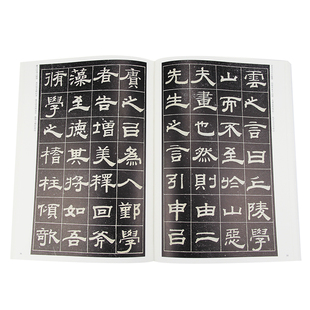 雲之言曰丘陵學
山而不至於山惡
夫畫也然則由二
先生之言引申己
賡之㠯為入鄞學
者告增美釋回斧
藻至德其將如吾
脩學之榰柱傾欹